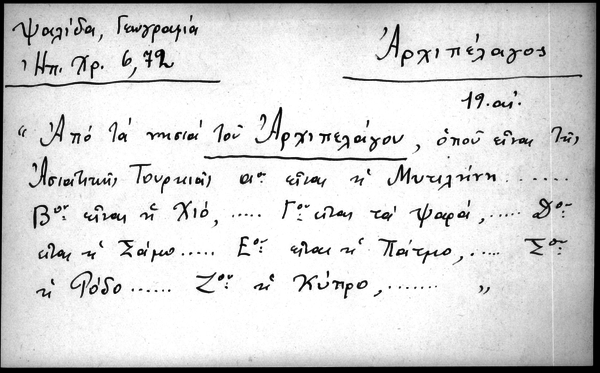 Ψαλίδα, Γεωγραφία
Ἠπ. Χρ. 6, 72
Ἀρχιπέλαγος
19. αἰ.
“ Ἀπό τά νησιά τοῦ Ἀρχιπελάγου, ὁποῦ εἶναι τῆς
Ἀσιατικῆς Τουρκιᾶς αον εἶναι ἡ Μυτιλήνη .......
Βον εἶναι ἡ Χιό, ..... Γον εἶναι τά Ψαρά, ..... Δον
εἶναι ἡ Σάμο ..... Εον εἶναι ἡ Πάτμο, ..... Σον
ἡ Ρόδο ...... Ζον ἡ Κύπρο, ....... „